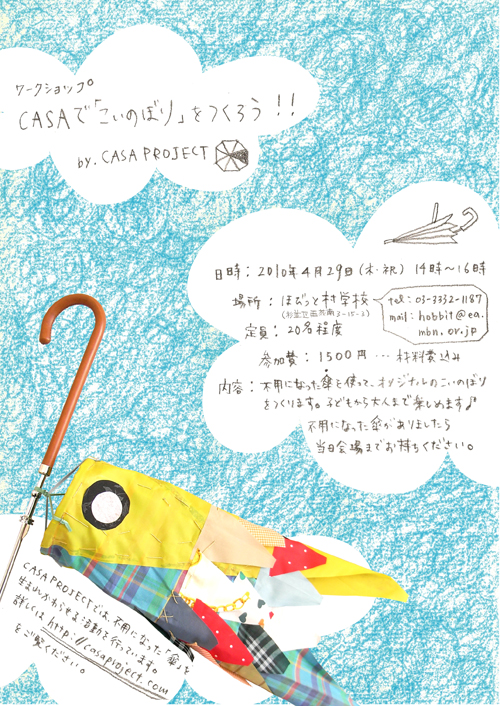 ワークショップ
CASAで「こいのぼり」をつくろう!!
by. CASA PROJECT
日時：2010年4月29日(木・祝) 14時〜16時
場所：ほびっと村学校
(杉並区西荻南3-15-3)
tel: 03-3332-1187
mail: hobbit@ea.
mbn.or.jp
定員：20名程度
参加費：1500円…材料費込み
内容：不用になった傘を使って、オリジナルのこいのぼり
をつくります。子どもから大人まで楽しめます♪
不用になった傘がありましたら
当日会場までお持ちください。
CASA PROJECTでは、不用になった「傘」を
生まれかわらせる活動を行っています。
詳しくは http://casaproject.com
をご覧ください。